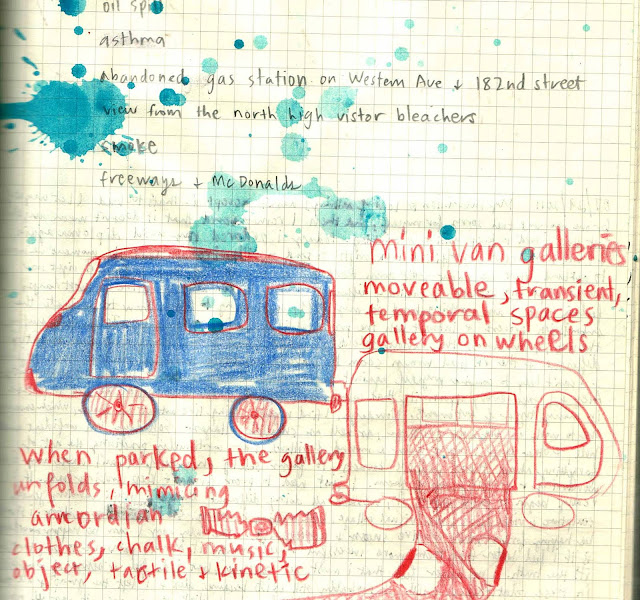 oil
asthma
abandoned gas station on Western Ave + 182nd street
view from the north high vistor bleachers
smoke
freeways + McDonalds
mini van galleries
moveable, transient,
temporal spaces
gallery on wheels
when parked, the gallery
unfolds, mimicing
accordian
clothes, chalk, music,
object, tactile + kinetic